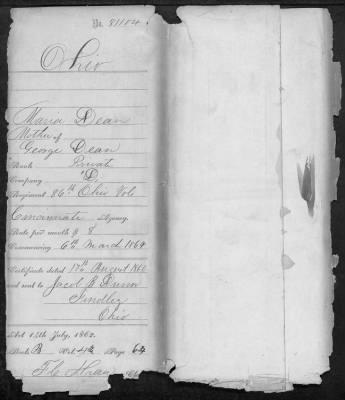 No. 81104
Ohio
Maria Dean
Mother of
George Dean
Rank Private
Company "D"
Regiment 86th Ohio Vols
Cincinnati Agency
Rate per month $ 8
Commencing 6th March 1864
Certificate dated 17th August 186
and sent to Jacob
Findley
Ohio
Act 14th July, 1862.
Book B Vol. Page 64